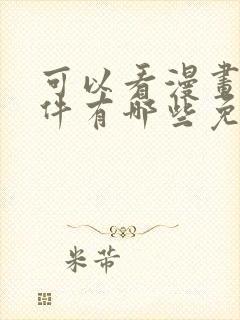 可以看漫畫
件有哪些免
米芾